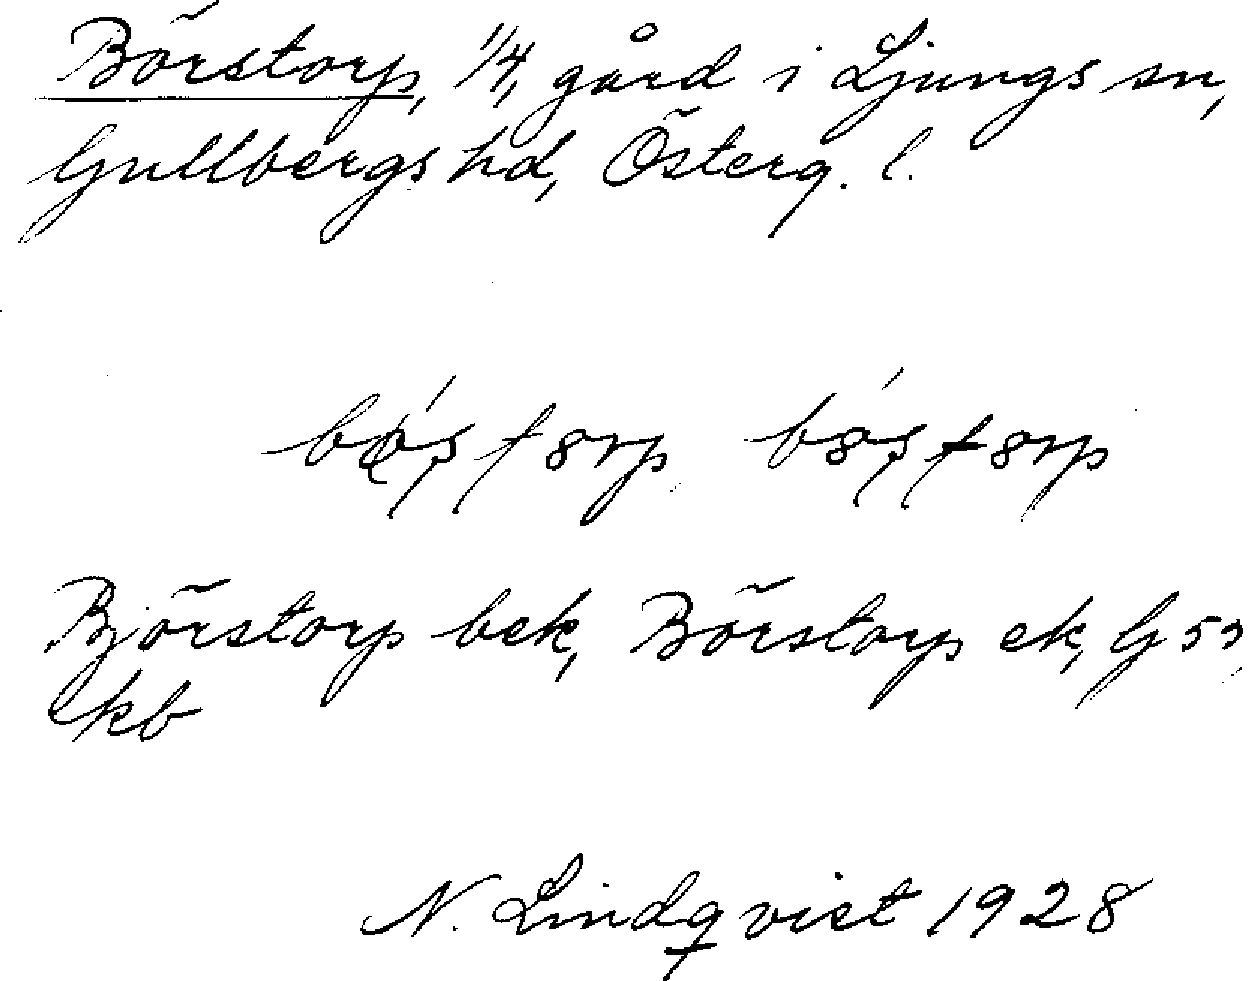 Börstorp, 1/4, gård i Ljungs sn,
Gullbergs hd, Österg. l.
Björstorp bek, Börstorp ek, G 53,
kb
N. Lindqvist 1928